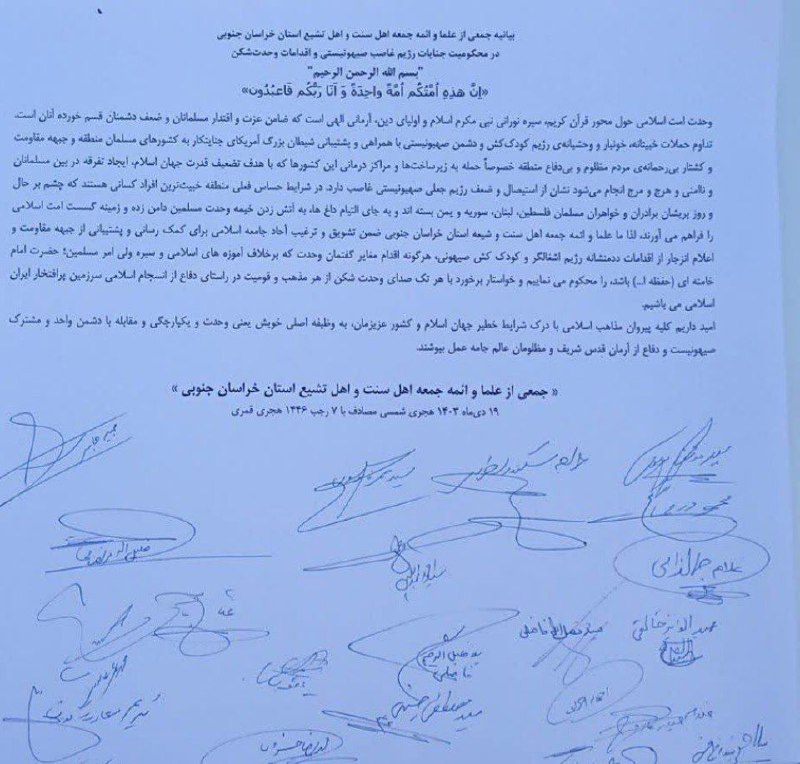 بیانیه جمعی از علما و ائمه جمعه اهل سنت و اهل تشیع استان خراسان جنوبی
در محکومیت جنایات رژیم غاصب صهیونیستی و اقدامات وحدت‌شکن
"بسم الله الرحمن الرحیم"
«اِنَّ هذِهِ اُمَّتُکُم اُمَّةً واحِدَةً وَ اَنَا رَبُّکُم فَاعبُدُون»
وحدت امت اسلامی حول محور قرآن کریم، سیره نورانی نبی مکرم اسلام و اولیای دین، آرمانی الهی است که ضامن عزت و اقتدار مسلمانان و ضعف دشمنان قسم خورده آنان است.
تداوم حملات خبیثانه، خونبار و وحشیانه‌ی رژیم کودک‌کش و دشمن صهیونیستی با همراهی و پشتیبانی شیطان بزرگ آمریکای جنایتکار به کشورهای مسلمان منطقه و جبهه مقاومت
و کشتار بی‌رحمانه‌ی مردم مظلوم و بی‌دفاع منطقه خصوصاً حمله به زیرساخت‌ها و مراکز درمانی این کشورها که با هدف تضعیف قدرت جهان اسلام، ایجاد تفرقه در بین مسلمانان
و ناامنی و هرج و مرج انجام می‌شود نشان از استیصال و ضعف رژیم جعلی صهیونیستی غاصب دارد. در شرایط حساس فعلی منطقه خبیث‌ترین افراد کسانی هستند که چشم بر حال
و روز پریشان برادران و خواهران مسلمان فلسطین، لبنان، سوریه و یمن بسته اند و به جای التیام داغ ها، به آتش زدن خیمه وحدت مسلمین دامن زده و زمینه گسست امت اسلامی
را فراهم می آورند، لذا ما علما و ائمه جمعه اهل سنت و شیعه استان خراسان جنوبی ضمن تشویق و ترغیب آحاد جامعه اسلامی برای کمک رسانی و پشتیبانی از جبهه مقاومت و
اعلام انزجار از اقدامات ددمنشانه رژیم اشغالگر و کودک کش صهیونی، هرگونه اقدام مغایر گفتمان وحدت که برخلاف آموزه های اسلامی و سیره ولی امر مسلمین؛ حضرت امام
خامنه ای (حفظه ا...) باشد، را محکوم می نماییم و خواستار برخورد با هر تک صدای وحدت شکن از هر مذهب و قومیت در راستای دفاع از انسجام اسلامی سرزمین پرافتخار ایران
اسلامی می باشیم.
امید داریم کلیه پیروان مذاهب اسلامی با درک شرایط خطیر جهان اسلام و کشور عزیزمان، به وظیفه اصلی خویش یعنی وحدت و یکپارچگی و مقابله با دشمن واحد و مشترک
صهیونیست و دفاع از آرمان قدس شریف و مظلومان عالم جامه عمل بپوشند.
« جمعی از علما و ائمه جمعه اهل سنت و اهل تشیع استان خراسان جنوبی »
۱۹ دی‌ماه ۱۴۰۳ هجری شمسی مصادف با ۷ رجب ۱۴۴۶ هجری قمری